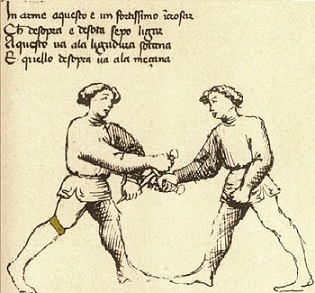 In arme aquesto e un fortissimo incrosar
Ch desopra e desota sepo ligar
Aquesto va ala ligadura sotana
E quello desopra va ala meçana